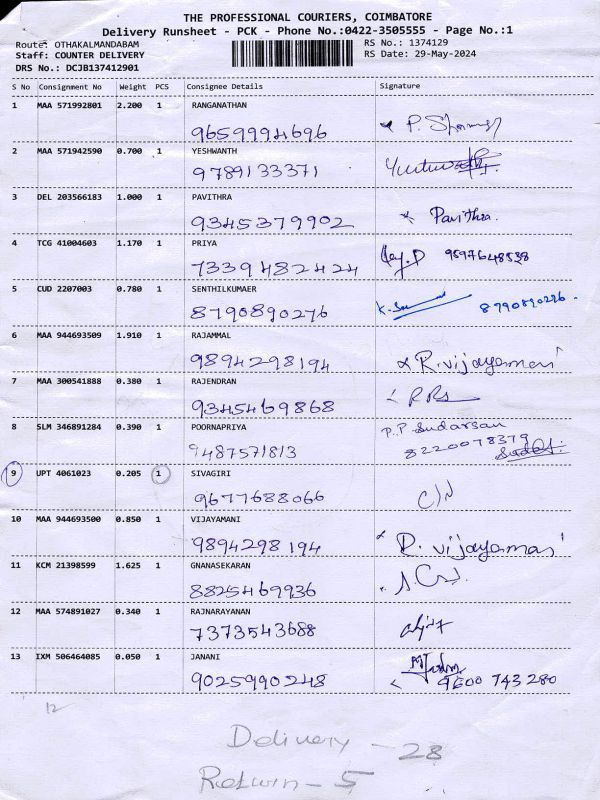 THE PROFESSIONAL COURIERS, COIMBATORE
Delivery Runsheet - PCK - Phone No.:0422-3505555 - Page No.:1
Route: OTHAKALMANDABAM RS No.: 1374129
Staff: COUNTER DELIVERY RS Date: 29-May-2024
DRS No.: DCJB137412901
S No Consignment No Weight PCS Consignee Details Signature
1 MAA 571992801 2.200 1 RANGANATHAN
9659994696 P.
2 MAA 571942590 0.700 1 YESHWANTH
9789133371
3 DEL 203566183 1.000 1 PAVITHRA
9345379902 Pavithra.
4 TCG 41004603 1.170 1 PRIYA
7339482424 9597648538
5 CUD 2207003 0.780 1 SENTHILKUMAER
8790890276 8790890276.
6 MAA 944693509 1.910 1 RAJAMMAL
9894298194 R. vijayamani
7 MAA 300541888 0.380 1 RAJENDRAN
9345469868
8 SLM 346891284 0.390 1 POORNAPRIYA P.P Sudarsan
9487571813 8220078379
9 UPT 4061023 0.205 1 SIVAGIRI
9677688066 C/N
10 MAA 944693500 0.850 1 VIJAYAMANI
9894298194 R. vijayamani
11 KCM 21398599 1.625 1 GNANASEKARAN
8825469936
12 MAA 574891027 0.340 1 RAJNARAYANAN
7373543688
13 IXM 506464085 0.050 1 JANANI
9025990248 9500 743 280
12
Delivery - 28
Return - 5